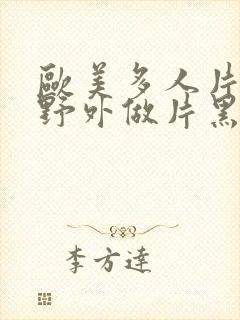 歐美多人片
野外做片黑
李方達